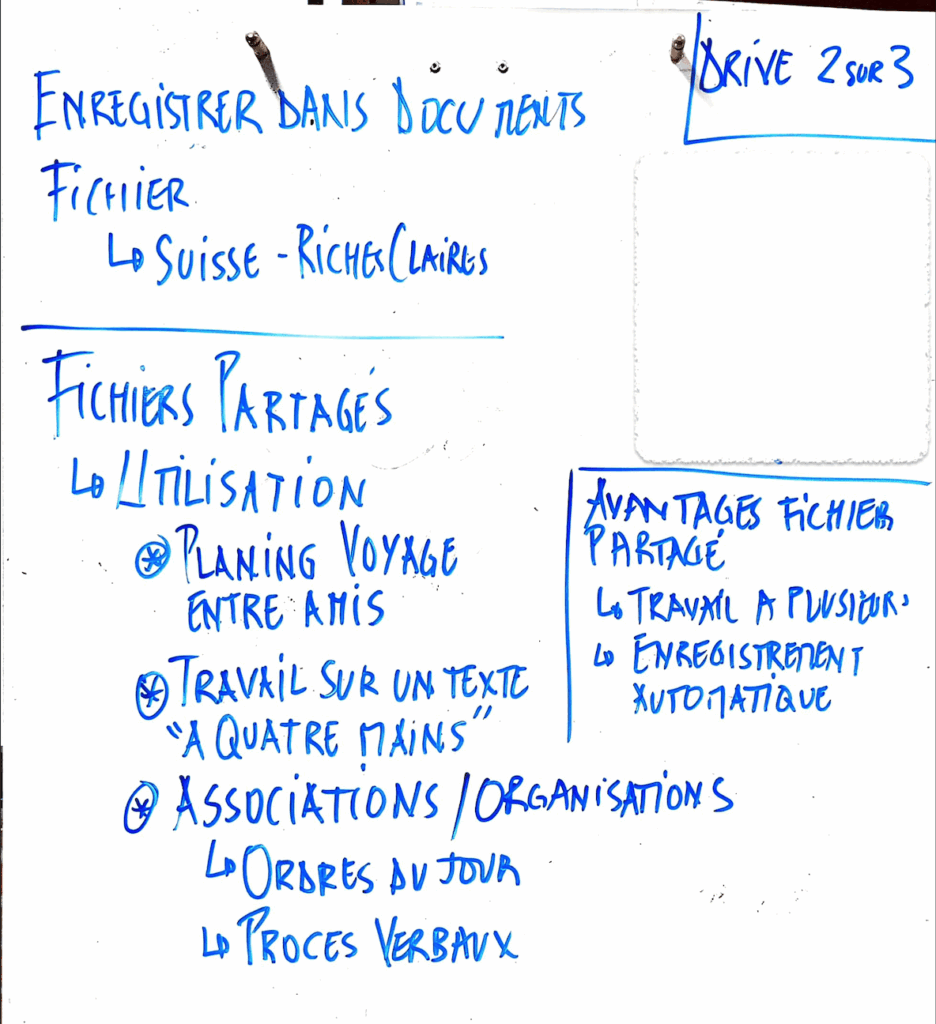 DRIVE 2 SUR 3
ENREGISTRER DANS DOCUMENTS
FICHIER
↳ SUISSE - RICHES CLAIRES
FICHIERS PARTAGÉS
↳ UTILISATION
⊛ PLANING VOYAGE
ENTRE AMIS
⊛ TRAVAIL SUR UN TEXTE
"A QUATRE MAINS"
⊛ ASSOCIATIONS / ORGANISATIONS
↳ ORDRES DU JOUR
↳ PROCES VERBAUX
AVANTAGES FICHIER
PARTAGÉ
↳ TRAVAIL A PLUSIEURS
↳ ENREGISTREMENT
AUTOMATIQUE